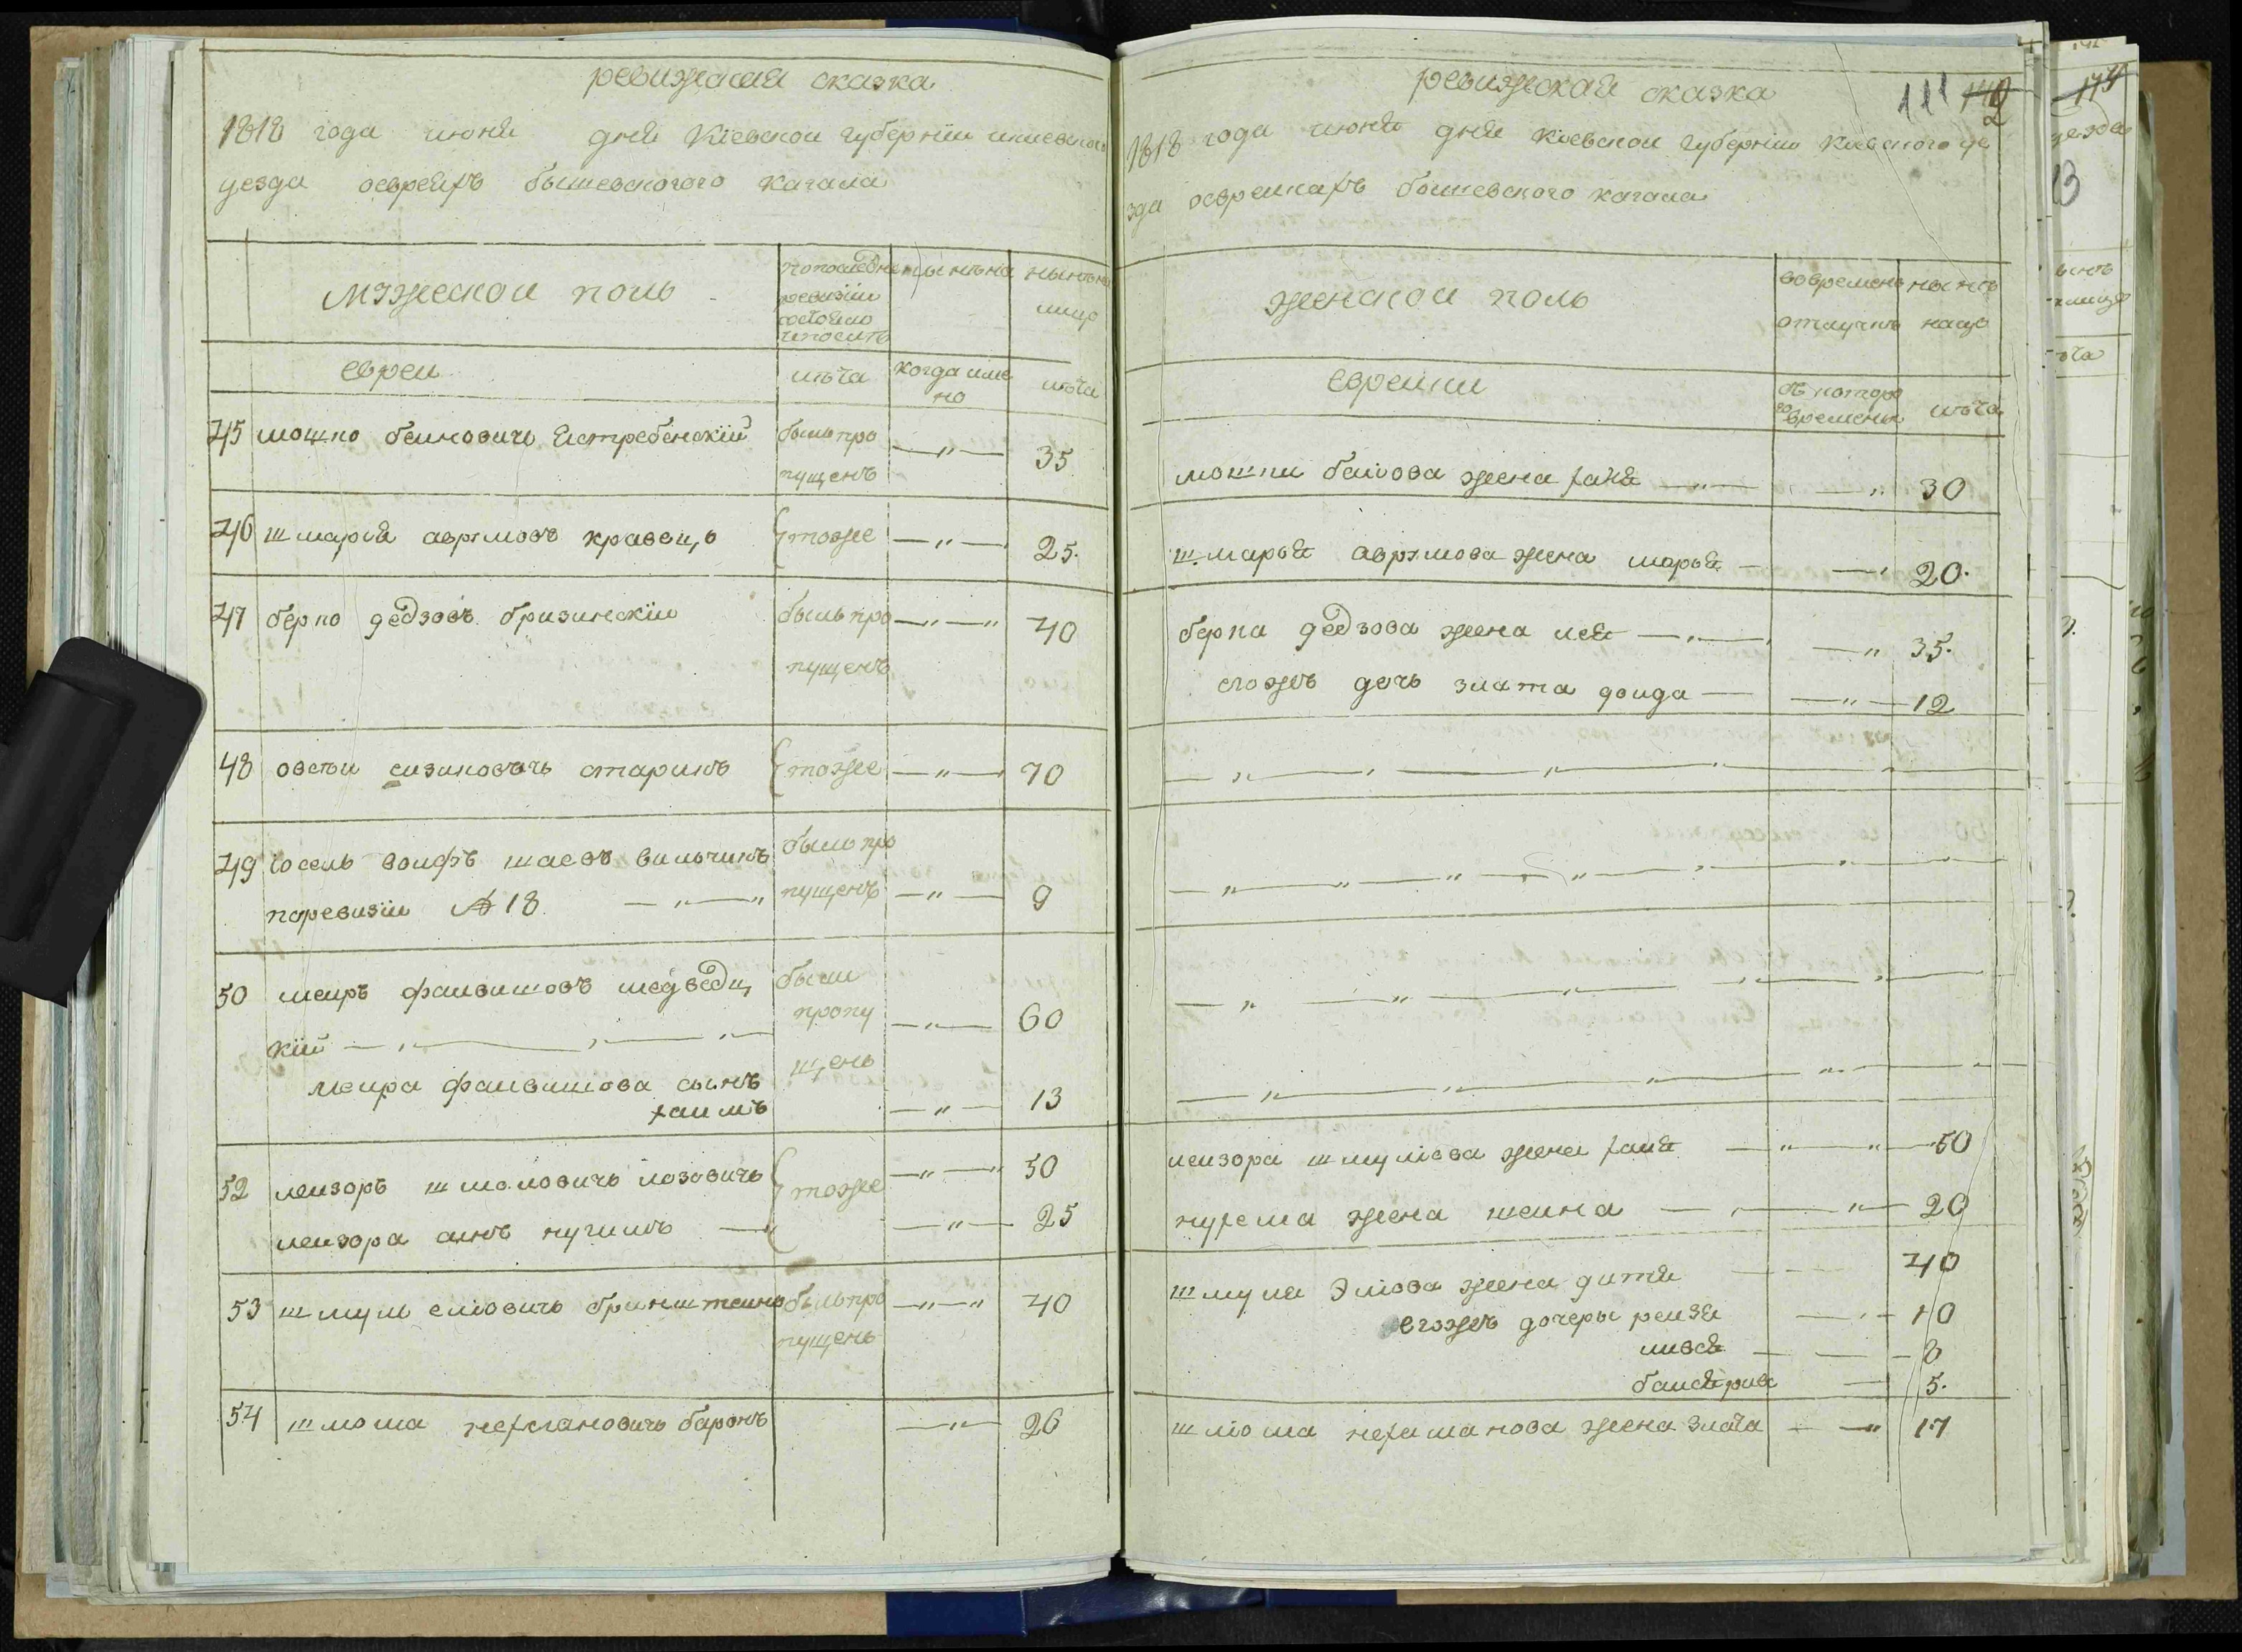 ревижская сказка
1818 года июня дня Киевской губернии киевского
уезда оевреяхъ бышевского кагала
мужеской полъ
по последней ревизии состояло и после того
ныне на лицо
евреи
лѣта
когда имено
лѣта
45 мошко беиновичъ Ястребенскій былъ про 35
пущенъ
46 шмарія аврумовъ кравецъ тоже 25.
47 берко дедзовъ бризинскій былъ про 40
пущенъ
48 овсеи сизиковичъ старикъ тоже 70
49 иосель волфъ шаевъ вильчикъ былъ про
по ревизіи № 18 пущенъ 9
50 меиръ фаивишовъ медведиц были
кій пропу 60
меира фаивишова сынъ щень
хаимъ 13
52 леизоръ шмоловичъ лозовичъ тоже 50
леизора сынъ нухимъ 25
53 шмул еліовичъ бринштеинъ былъ про 40
пущенъ
54 шлома нехемановичъ баронъ 26
ревижская сказка
111 142
1818 года июня дня киевской губерніи киевского уе
зда оевреикахъ бышевского кагала
женской полъ
во временной отлучке
ныне на лицо
евреики
съ которого времени
лѣта
мошки беинова жена ханя 30
шмарья аврумова жена марья 20.
берка дедзова жена лея 35.
егожъ дочь злата фоида 12
леизора шмуліова жена хая 50
нухема жена шеина 20
шмуля Эліова жена дитя 40
егожъ дочеры реизя 10
лився 8
басярива 5.
шлома нехеманова жена злата 17